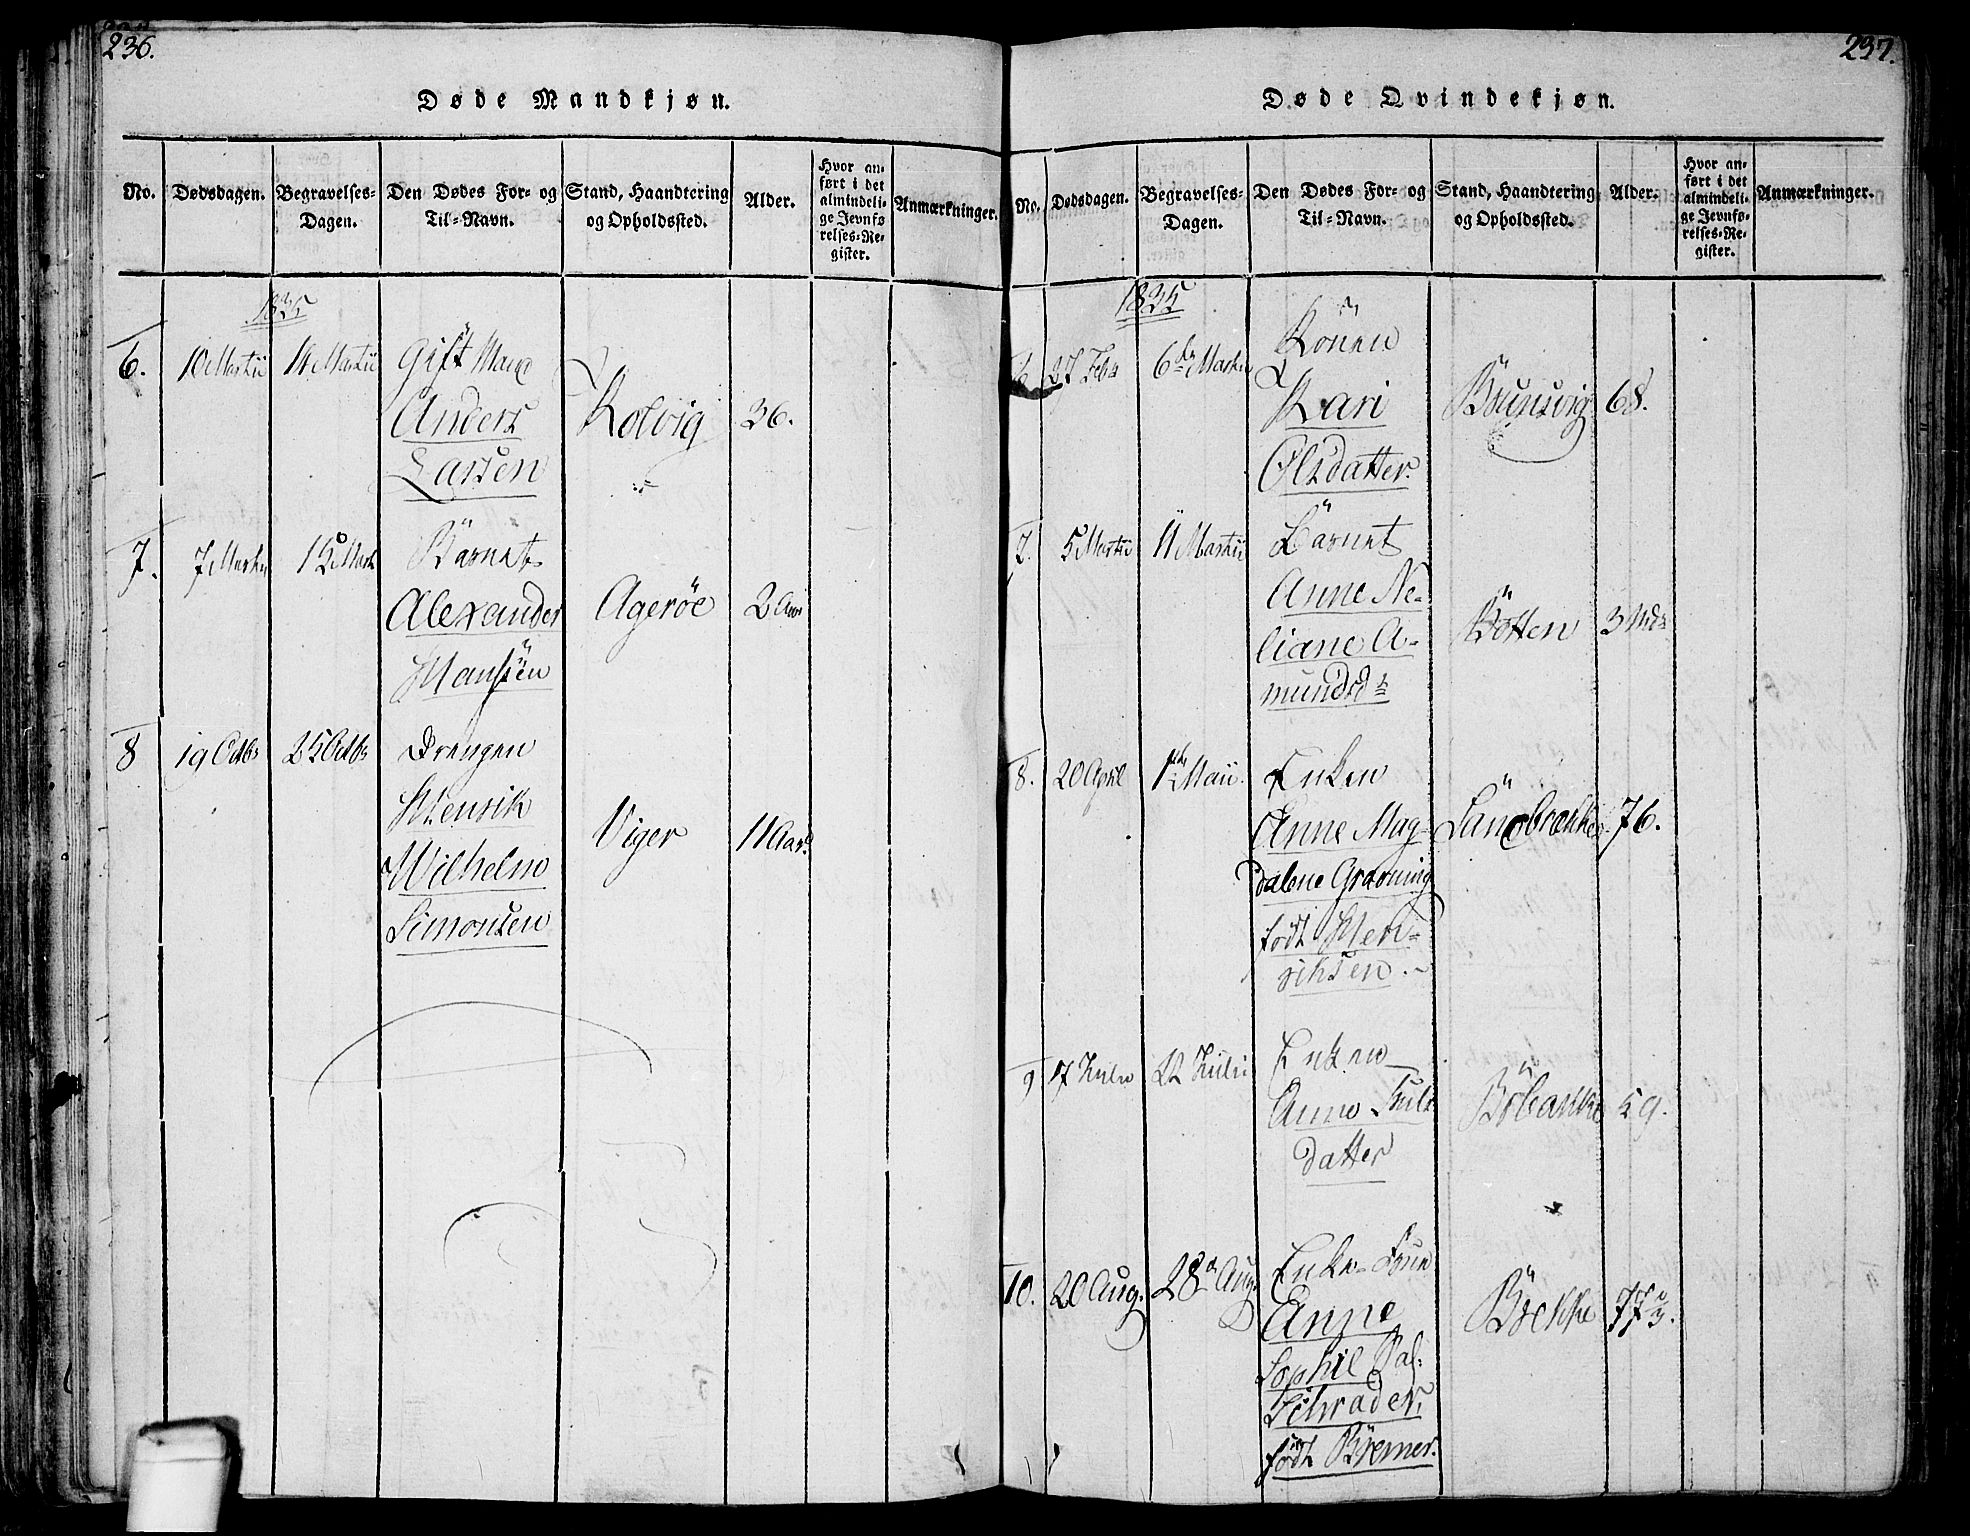 236.
Døde Mandkjøn.
No. Dødsdagen. Begravelses-Dagen. Den Dødes For- og Til-Navn. Stand, Haandtering og Opholdssted. Alder. Hvor anført i det almindelige Jevnførelses-Register. Anmærkninger.
1835
6. 10 Martii 14 Martii Gift Mand
Anders Kolvig 36.
Larsen
7. 7 Martii 15 Mart Barnet
Alexander Agerøe 2 Aar
Hansen
8 19 Octbr 25 Octbr Drengen
Henrik
Wilhelm Viger 11 Aar
Simonsen
237.
Døde Qvindekjøn.
No. Dødsdagen. Begravelses-Dagen. Den Dødes For- og Til-Navn. Stand, Haandtering og Opholdssted. Alder. Hvor anført i det almindelige Jevnførelses-Register. Anmærkninger.
1835
6 27 Feb 6de Martii Konen
Kari Brunsvig 68.
Olsdatter.
7. 5 Martii 11 Martii Barnet
Anne Ne-
liane A- Botten 3 Mdr
mundsdr
8. 20 April 1ste Maii. Enken
Anne Mag- Sandbrække 76.
dalene Graoning
født Hen-
riksen.
9 17 Julii 22 Julii Enken
Anne
datter 59.
10. 20 Aug. 28de Aug. Enke
Anne Brekke 77
Sophie
Schrader,
født Bremer.